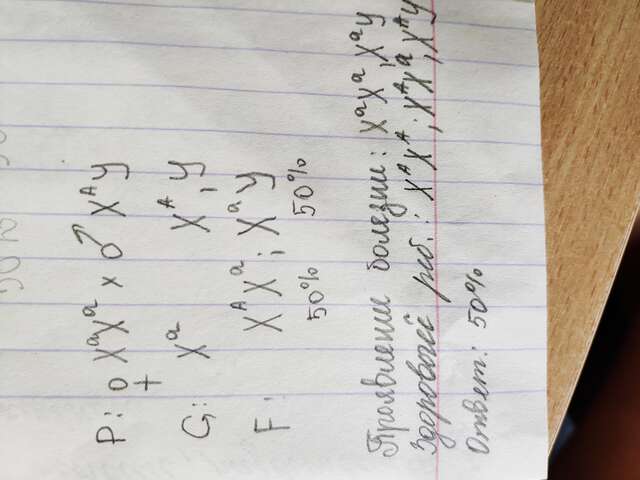 P: ♀ XᵃXᵃ x ♂ XᴬY
G: Xᵃ Xᴬ, Y
F: XᴬXᵃ; XᵃY
50% 50%
Проявление болезни: XᵃXᵃ, XᵃY
Здоровый реб.: XᴬXᴬ; XᴬXᵃ, XᴬY
Ответ: 50%